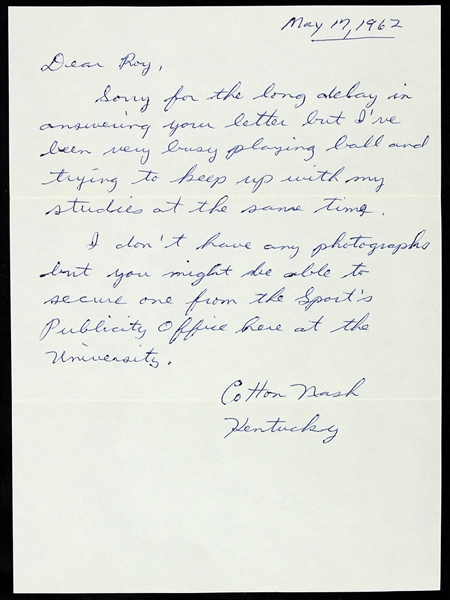 May 17, 1962
Dear Roy,
Sorry for the long delay in
answering your letter but I've
been very busy playing ball and
trying to keep up with my
studies at the same time.
I don't have any photographs
but you might be able to
secure one from the Sport's
Publicity Office here at the
University.
Cotton Nash
Kentucky